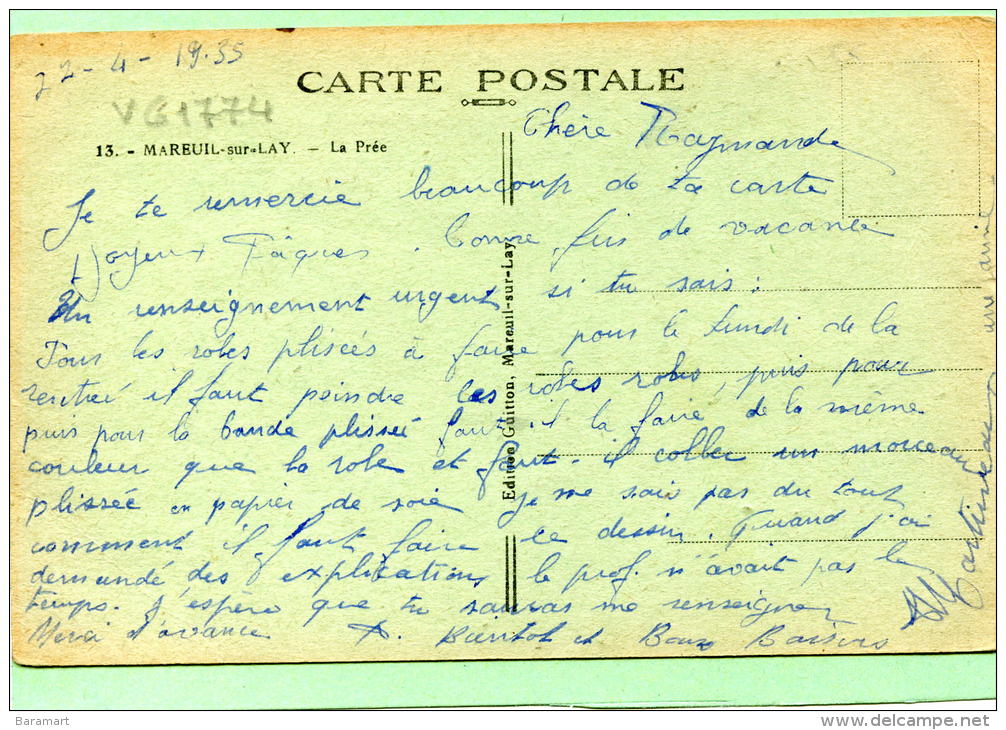 22-4-1935
CARTE POSTALE
VG1774
13. - MAREUIL-sur-LAY. - La Prée
Chère Raymande
Je te remercie beaucoup de ta carte
Joyeux Pâques. Bonne fin de vacance
Un renseignement urgent si tu sais :
Tous les robes plisées à faire pour le lundi de la
rentrée il faut peindre les robes robes, puis pour
puis pour la bande plissée faut-il la faire de la même
couleur que la robe et faut-il coller un morceau
plissée en papier de soie je me sais pas du tout
comment il faut faire ce dessin. Quand j'ai
demandé des explications le prof. n'avait pas le
temps. J'espère que tu sauras me renseigner
Merci d'avance A. Bientot et Bons Baisers
une amie
Edition Guitton, Mareuil-sur-Lay
Baramart
www.delcampe.net